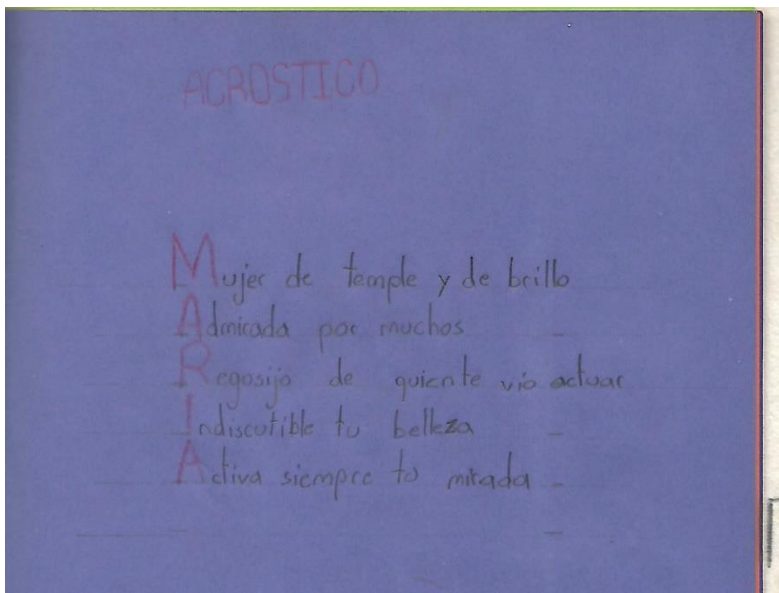 ACROSTICO
Mujer de temple y de brillo
Admirada por muchos
Regosijo de quiente vio actuar
Indiscutible tu belleza
Activa siempre tu mirada